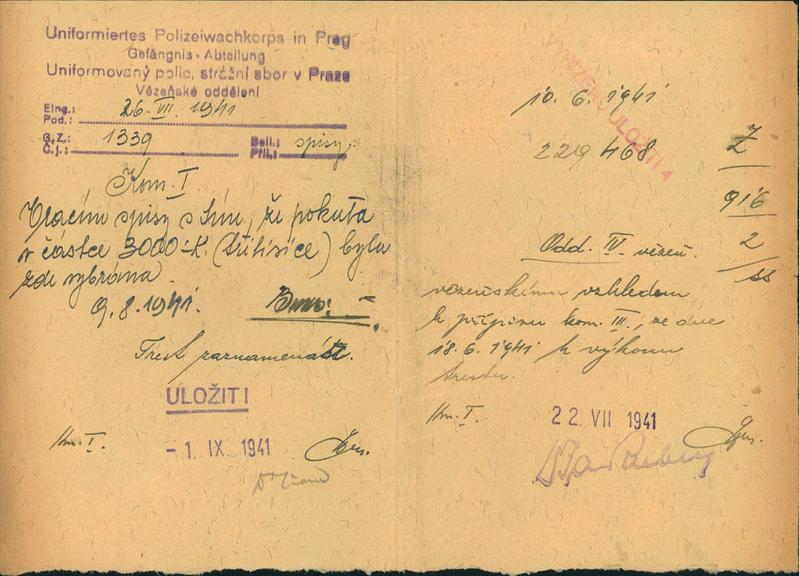 Uniformiertes Polizeiwachkorps in Prag
Gefängnis-Abteilung
Uniformovaný polic. strážní sbor v Praze
Vězeňské oddělení
Eing.:
Pod.: 26. VII. 1941
G.Z.:
Č.j.: 1339
Beil.:
Příl.: spisy
Kom. I
Vracím spisy s tím, že pokuta
v částce 3000·-K. (třitisíce) byla
zde vybrána
9. 8. 1941.
Trest zaznamenat.
ULOŽITI
Km. I.
- 1. IX 1941
VYŘÍZENO ULOŽITI
10. 6. 1941
229 468
Z
916
2
ss
Odd. IV. vězeň.
vězeňskému vzhledem
k přípisu kom. III, ze dne
18. 6. 1941 k výkonu
trestu.
Km. I.
22 VII 1941